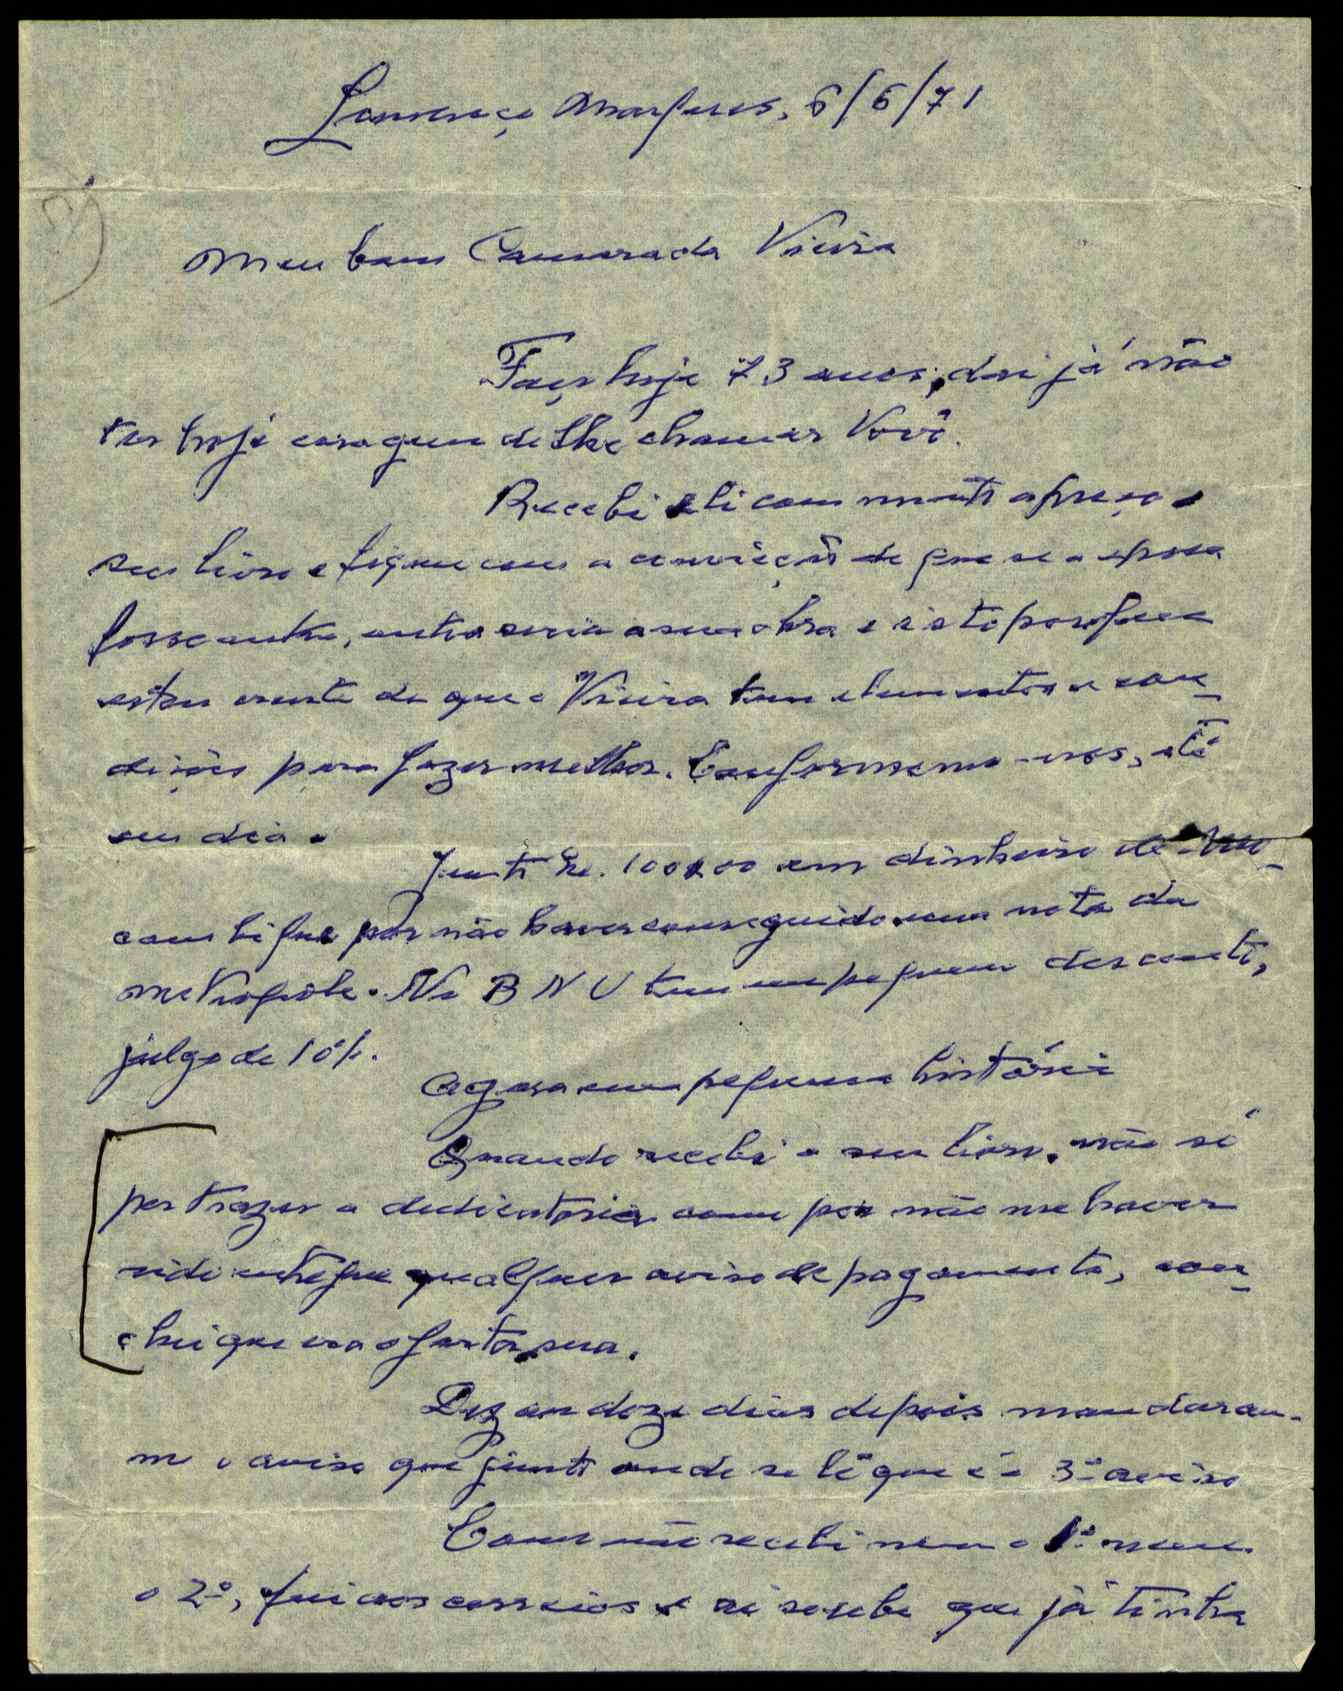 Lourenço Marques, 6/6/71
Meu bom Camarada Vieira
Faço hoje 73 anos, daí já não
ter hoje coragem de lhe chamar Vovô.
Recebi e li com muito apreço o
seu livro e fiquei com a convicção de que se a época
fosse outra, outra seria a sua obra e isto porque
estou crente de que o Vieira tem elementos e con-
dições para fazer melhor. Conformemo-nos, até
um dia.
Junto Esc. 100$00 em dinheiro de Mo-
cambique por não haver conseguido uma nota da
metropole. No B N U tem um pequeno desconto,
julgo de 10%.
Agora uma pequena história
Quando recebi o seu livro, não só
por trazer a dedicatoria como por não me haver
sido entregue qualquer aviso de pagamento, con-
clui que era oferta sua.
Dez ou doze dias depois mandaram-
me o aviso que junto onde se lê que é o 3º aviso
Como não recebi nem o 1º nem
o 2º, fui aos correios e aí soube que já tinha